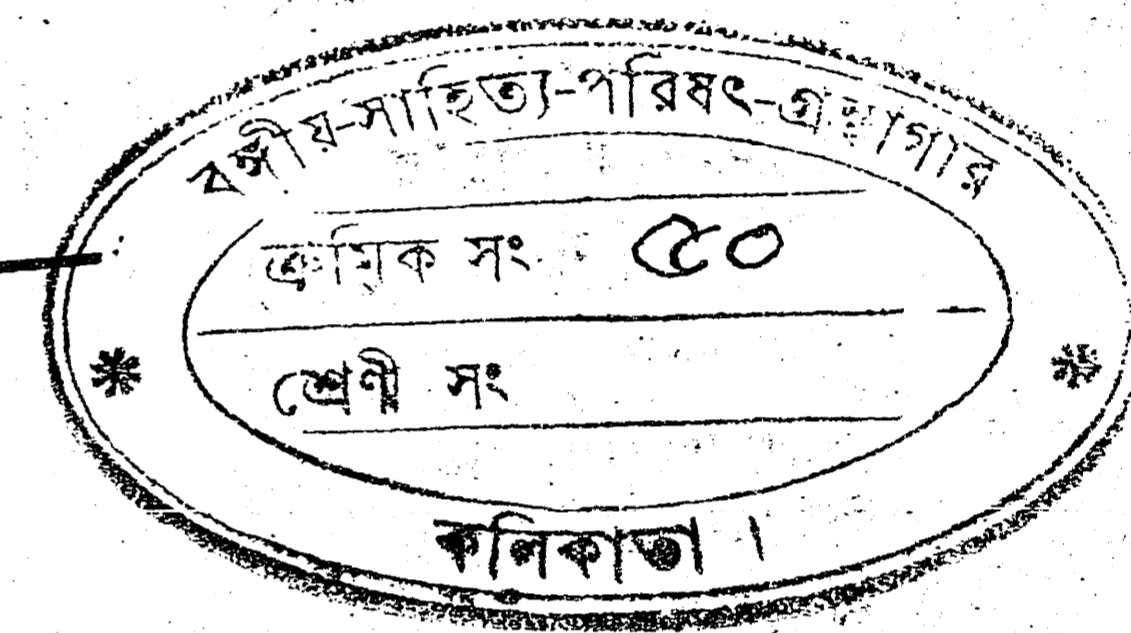 বঙ্গীয়-সাহিত্য-পরিষৎ-গ্রন্থাগার
ক্রমিক সং ৫০
শ্রেণী সং
কলিকাতা ।